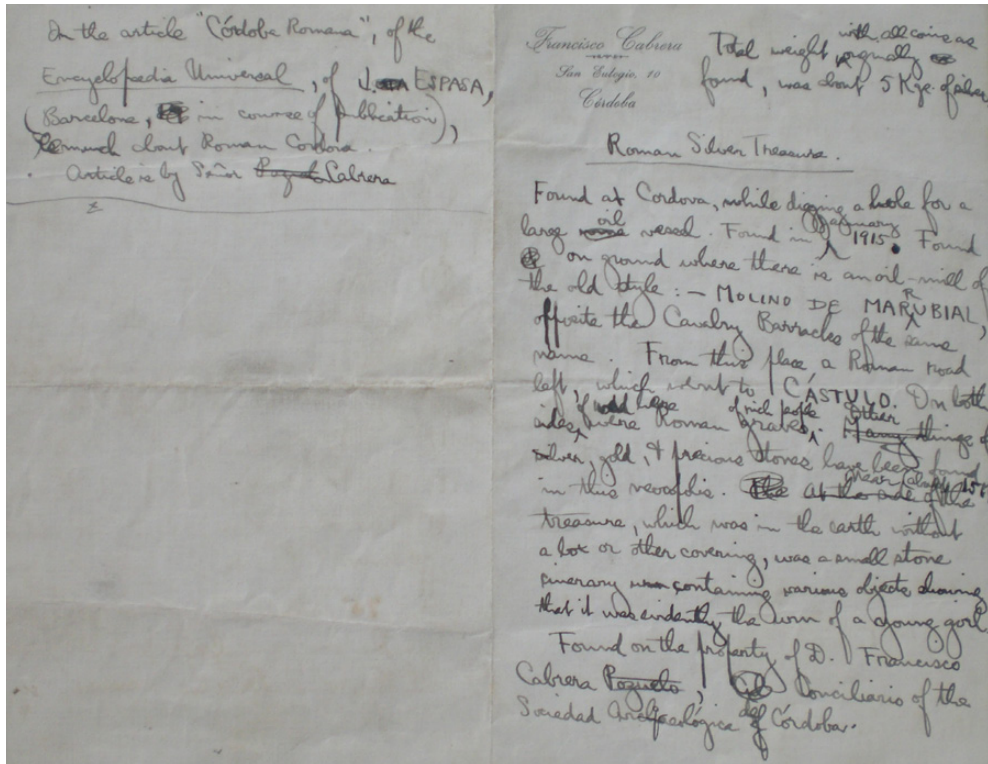 In the article "Córdoba Romana", of the
Encyclopædia Universal, of J. ESPASA,
(Barcelona, in course of publication),
much about Roman Cordova.
Article is by Señor Cabrera
Francisco Cabrera
San Eulogio, 10
Córdoba
with all coins as
Total weight originally
found, was about 5 Kgs. of silver
Roman Silver Treasure.
Found at Cordova, while digging a hole for a
large oil vessel. Found in January 1915. Found
on ground where there is an oil-mill of
the old style :- MOLINO DE MARRUBIAL,
opposite the Cavalry Barracks of the same
name. From this place a Roman road
left, which went to CÁSTULO. On both
sides, were Roman graves of rich people. Other things of
silver, gold, & precious stones have been found
in this necropolis. Near the
treasure, which was in the earth without
a box or other covering, was a small stone
cinerary urn containing various objects showing
that it was evidently the urn of a young girl.
Found on the property of D. Francisco
Cabrera Pozuelo, Conciliario of the
Sociedad Arqueológica de Córdoba.